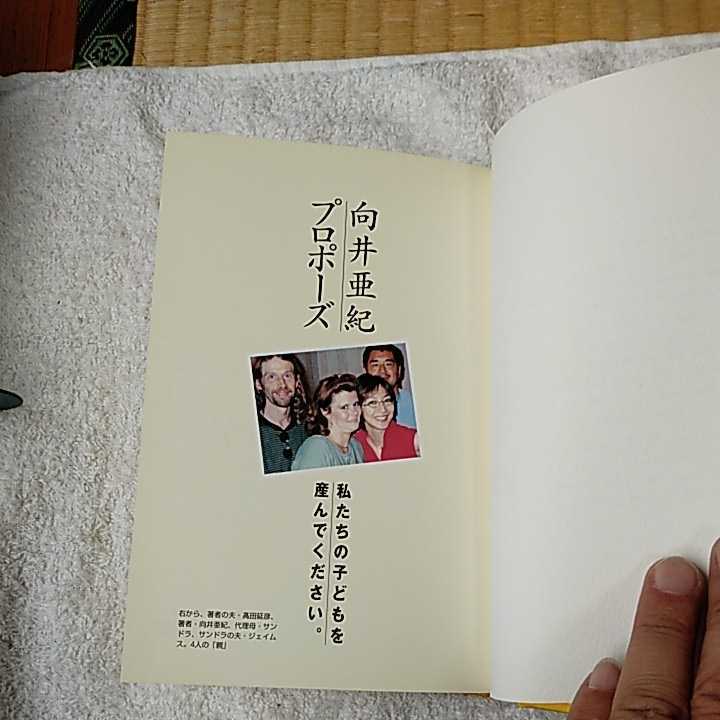 向井亜紀
プロポーズ
私たちの子どもを
産んでください。
右から、著者の夫・高田延彦、
著者・向井亜紀、代理母・サン
ドラ、サンドラの夫・ジェイム
ス。4人の「親」